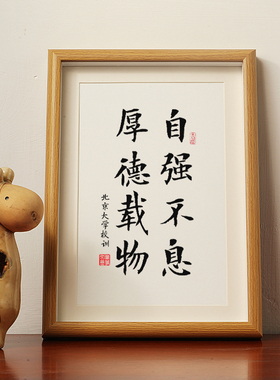 自强不息
厚德载物
北京大学校训